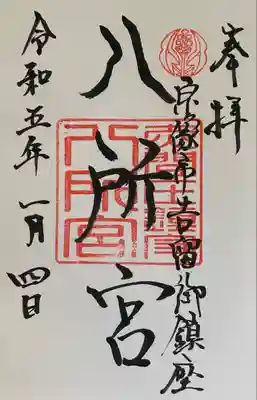 奉拝
宗像市吉留御鎮座
八所宮
令和五年一月四日